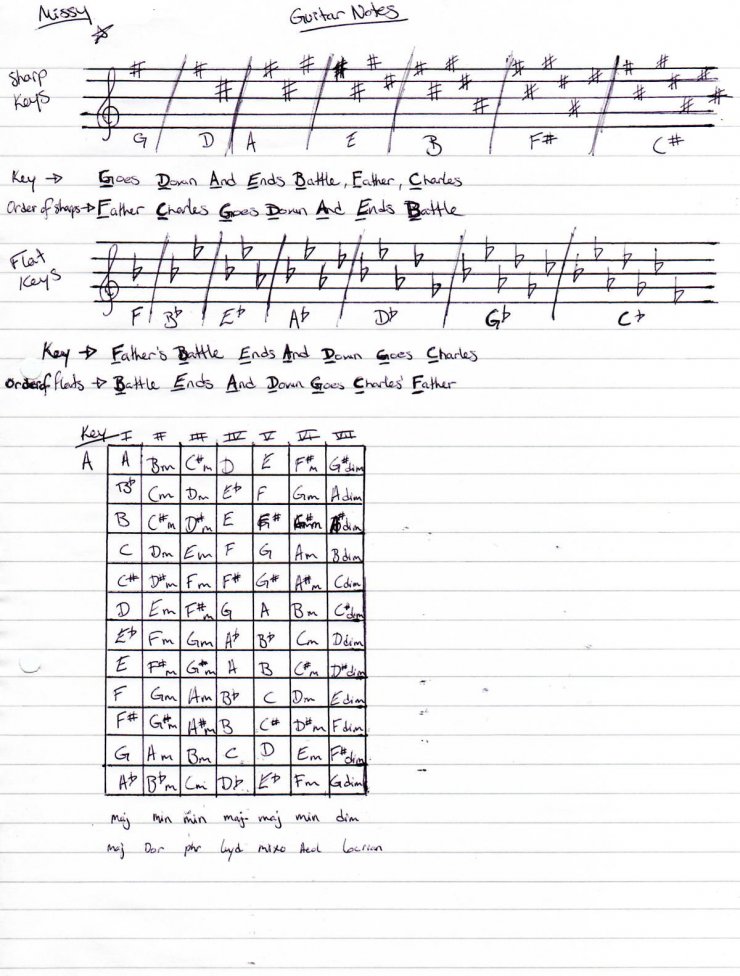 Missy
Guitar Notes
Sharp Keys
G D A E B F# C#
Key → Goes Down And Ends Battle, Father, Charles
Order of sharps → Father Charles Goes Down And Ends Battle
Flat Keys
F B♭ E♭ A♭ D♭ G♭ C♭
Key → Father's Battle Ends And Down Goes Charles
Order of flats → Battle Ends And Down Goes Charles' Father
Key I II III IV V VI VII
A A Bm C#m D E F#m G#dim
B♭ Cm Dm E♭ F Gm Adim
B C#m D#m E F# G#m
C Dm Em F G Am Bdim
C# D#m Fm F# G# A#m Cdim
D Em F#m G A Bm C#dim
E♭ Fm Gm A♭ B♭ Cm Ddim
E F#m G#m A B C#m D#dim
F Gm Am B♭ C Dm Edim
F# G#m A#m B C# D#m Fdim
G Am Bm C D Em F#dim
A♭ B♭m Cm D♭ E♭ Fm Gdim
maj min min maj maj min dim
maj Dor phr Lyd mixo Aeol Locrian